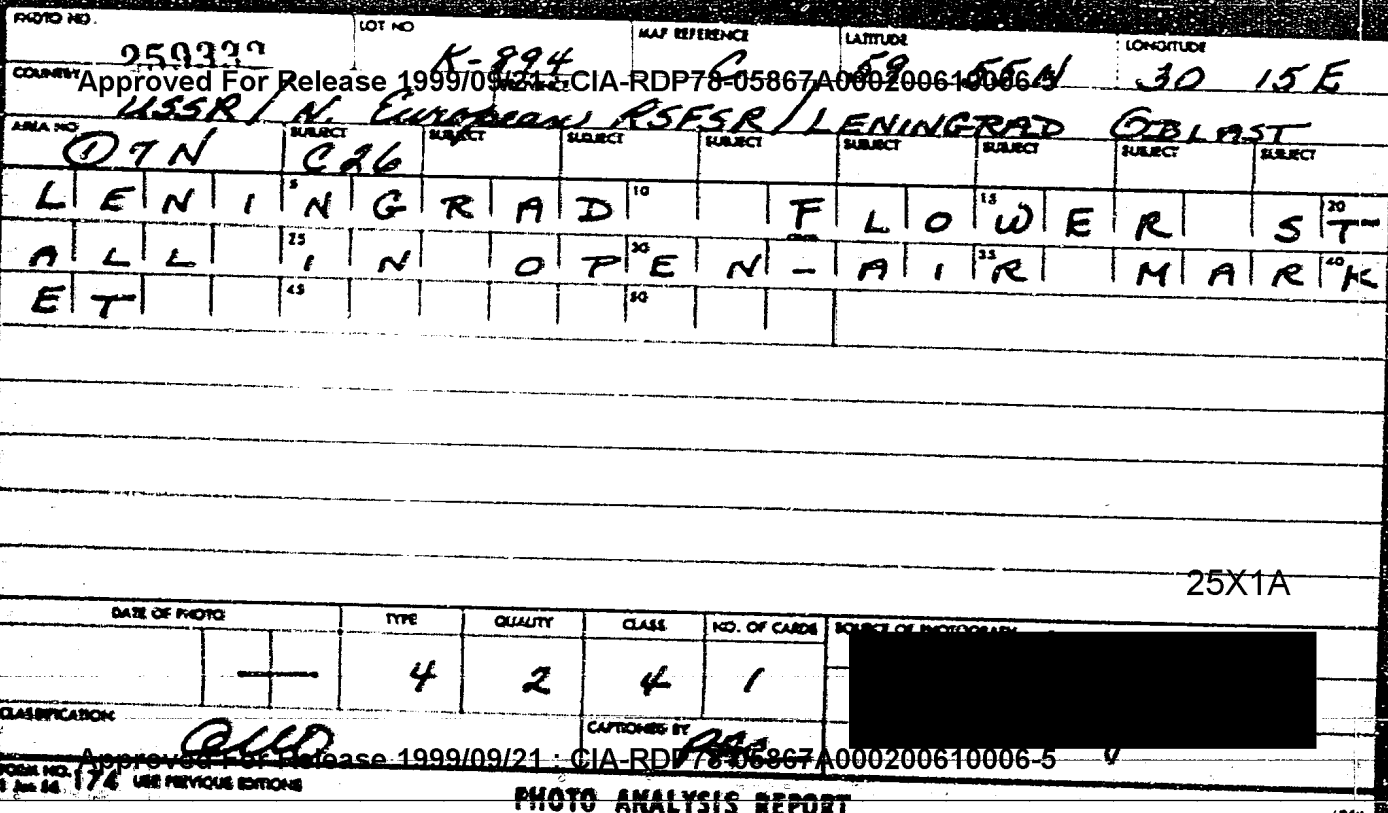 PHOTO NO. LOT NO MAP REFERENCE LATITUDE LONGITUDE
K-894 C 59 55N 30 15E
COUNTRY Approved For Release 1999/09/21 : CIA-RDP78-05867A000200610006-5
USSR / N. European RSFSR / LENINGRAD OBLAST
AREA NO SUBJECT SUBJECT SUBJECT SUBJECT SUBJECT SUBJECT SUBJECT SUBJECT
① 7 N C26
LENINGRAD FLOWER ST
ALL IN OPEN-AIR MARK
ET
5 10 15 20
25 30 35 40
45 50
25X1A
DATE OF PHOTO TYPE QUALITY CLASS NO. OF CARDS SOURCE OF PHOTOGRAPHY
4 2 4 1
CLASSIFICATION CAPTIONED BY
Approved For Release 1999/09/21 : CIA-RDP78-05867A000200610006-5
FORM NO. 174 USE PREVIOUS EDITIONS
PHOTO ANALYSIS REPORT